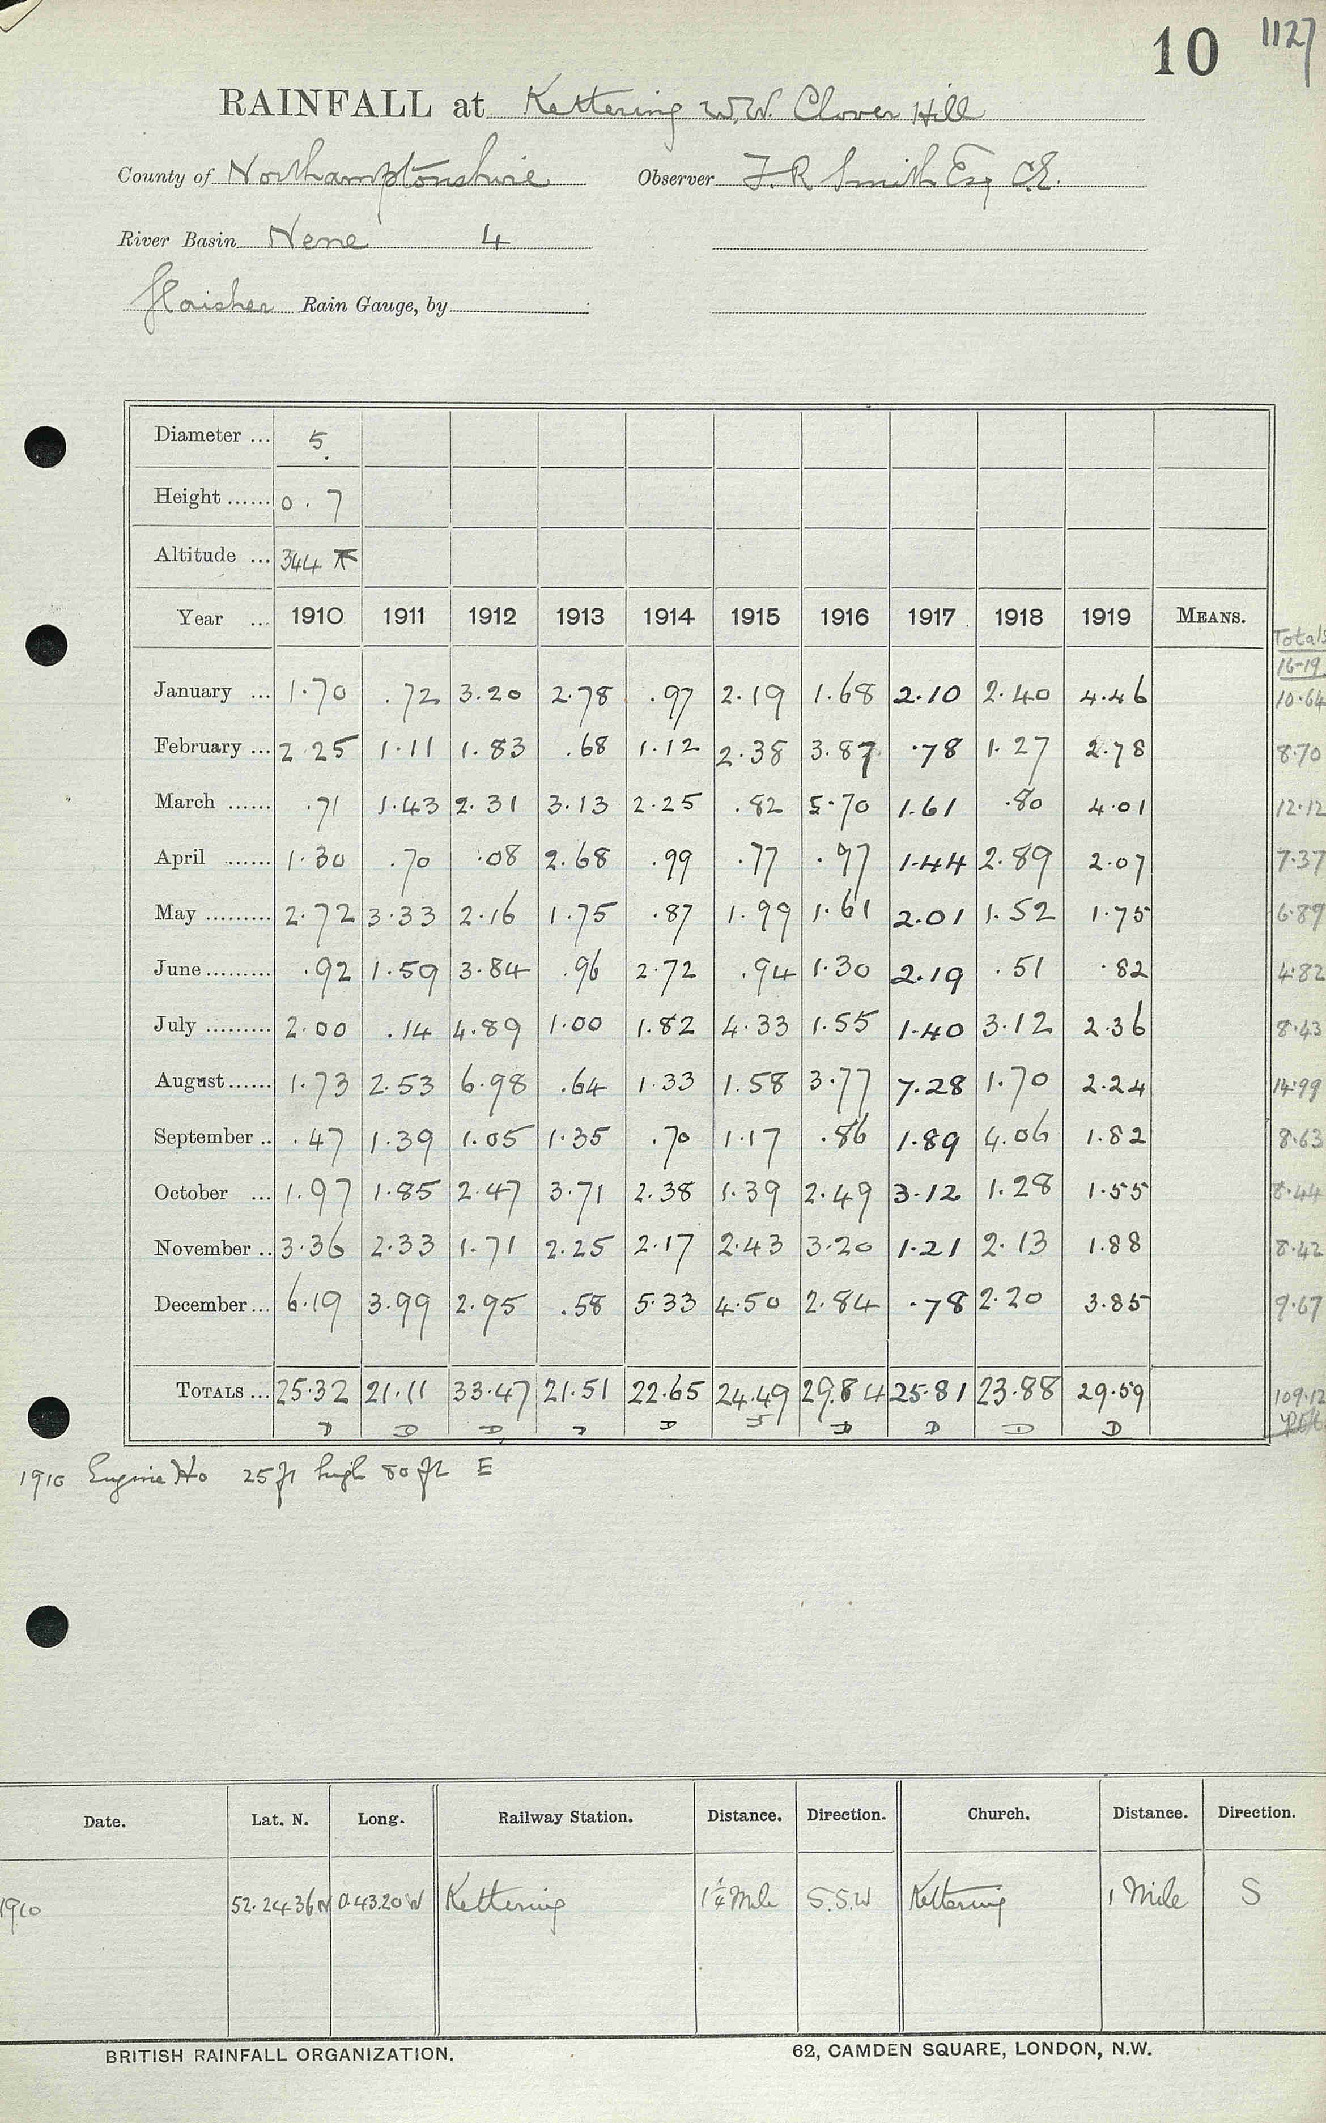 10 1127
RAINFALL at Kettering W.W. Clover Hill
County of Northamptonshire Observer F.R Smith Esq C.E.
River Basin Nene 4
Glaisher Rain Gauge, by
Diameter ... 5
Height ...... 0.7
Altitude ... 344
Year ... 1910 1911 1912 1913 1914 1915 1916 1917 1918 1919 MEANS. Totals
16-19
January ... 1.70 .72 3.20 2.78 .97 2.19 1.68 2.10 2.40 4.46 10.64
February ... 2.25 1.11 1.83 .68 1.12 2.38 3.87 .78 1.27 2.78 8.70
March ...... .71 1.43 2.31 3.13 2.25 .82 5.70 1.61 .80 4.01 12.12
April ...... 1.30 .70 .08 2.68 .99 .77 .97 1.44 2.89 2.07 7.37
May ......... 2.72 3.33 2.16 1.75 .87 1.99 1.61 2.01 1.52 1.75 6.89
June ......... .92 1.59 3.84 .96 2.72 .94 1.30 2.19 .51 .82 4.82
July ......... 2.00 .14 4.89 1.00 1.82 4.33 1.55 1.40 3.12 2.36 8.43
August ...... 1.73 2.53 6.98 .64 1.33 1.58 3.77 7.28 1.70 2.24 14.99
September .. .47 1.39 1.05 1.35 .70 1.17 .86 1.89 4.06 1.82 8.63
October ... 1.97 1.85 2.47 3.71 2.38 1.39 2.49 3.12 1.28 1.55 8.44
November .. 3.36 2.33 1.71 2.25 2.17 2.43 3.20 1.21 2.13 1.88 8.42
December ... 6.19 3.99 2.95 .58 5.33 4.50 2.84 .78 2.20 3.85 9.67
TOTALS ... 25.32 21.11 33.47 21.51 22.65 24.49 29.84 25.81 23.88 29.59 109.12
D D D D D D D D D
1910 Engine Ho 25 ft high 80 ft E
Date. Lat. N. Long. Railway Station. Distance. Direction. Church. Distance. Direction.
1910 52.24 36 N 0.43.20 W Kettering 1¼ Mile S.S.W Kettering 1 Mile S
BRITISH RAINFALL ORGANIZATION. 62, CAMDEN SQUARE, LONDON, N.W.